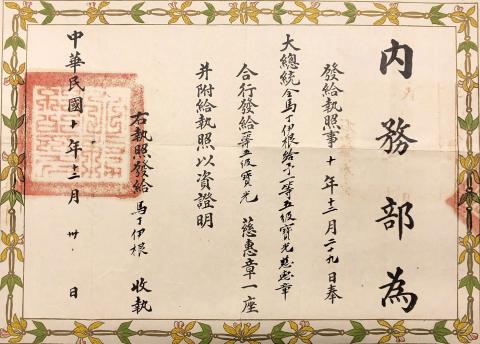 內務部為
發給執照事十年十二月二十九日奉
大總統令馬丁伊根給予一等五級寶光慈惠章
合行發給一等五級寶光慈惠章一座
并附給執照以資證明
右執照發給馬丁伊根收執
中華民國十年十二月卅日